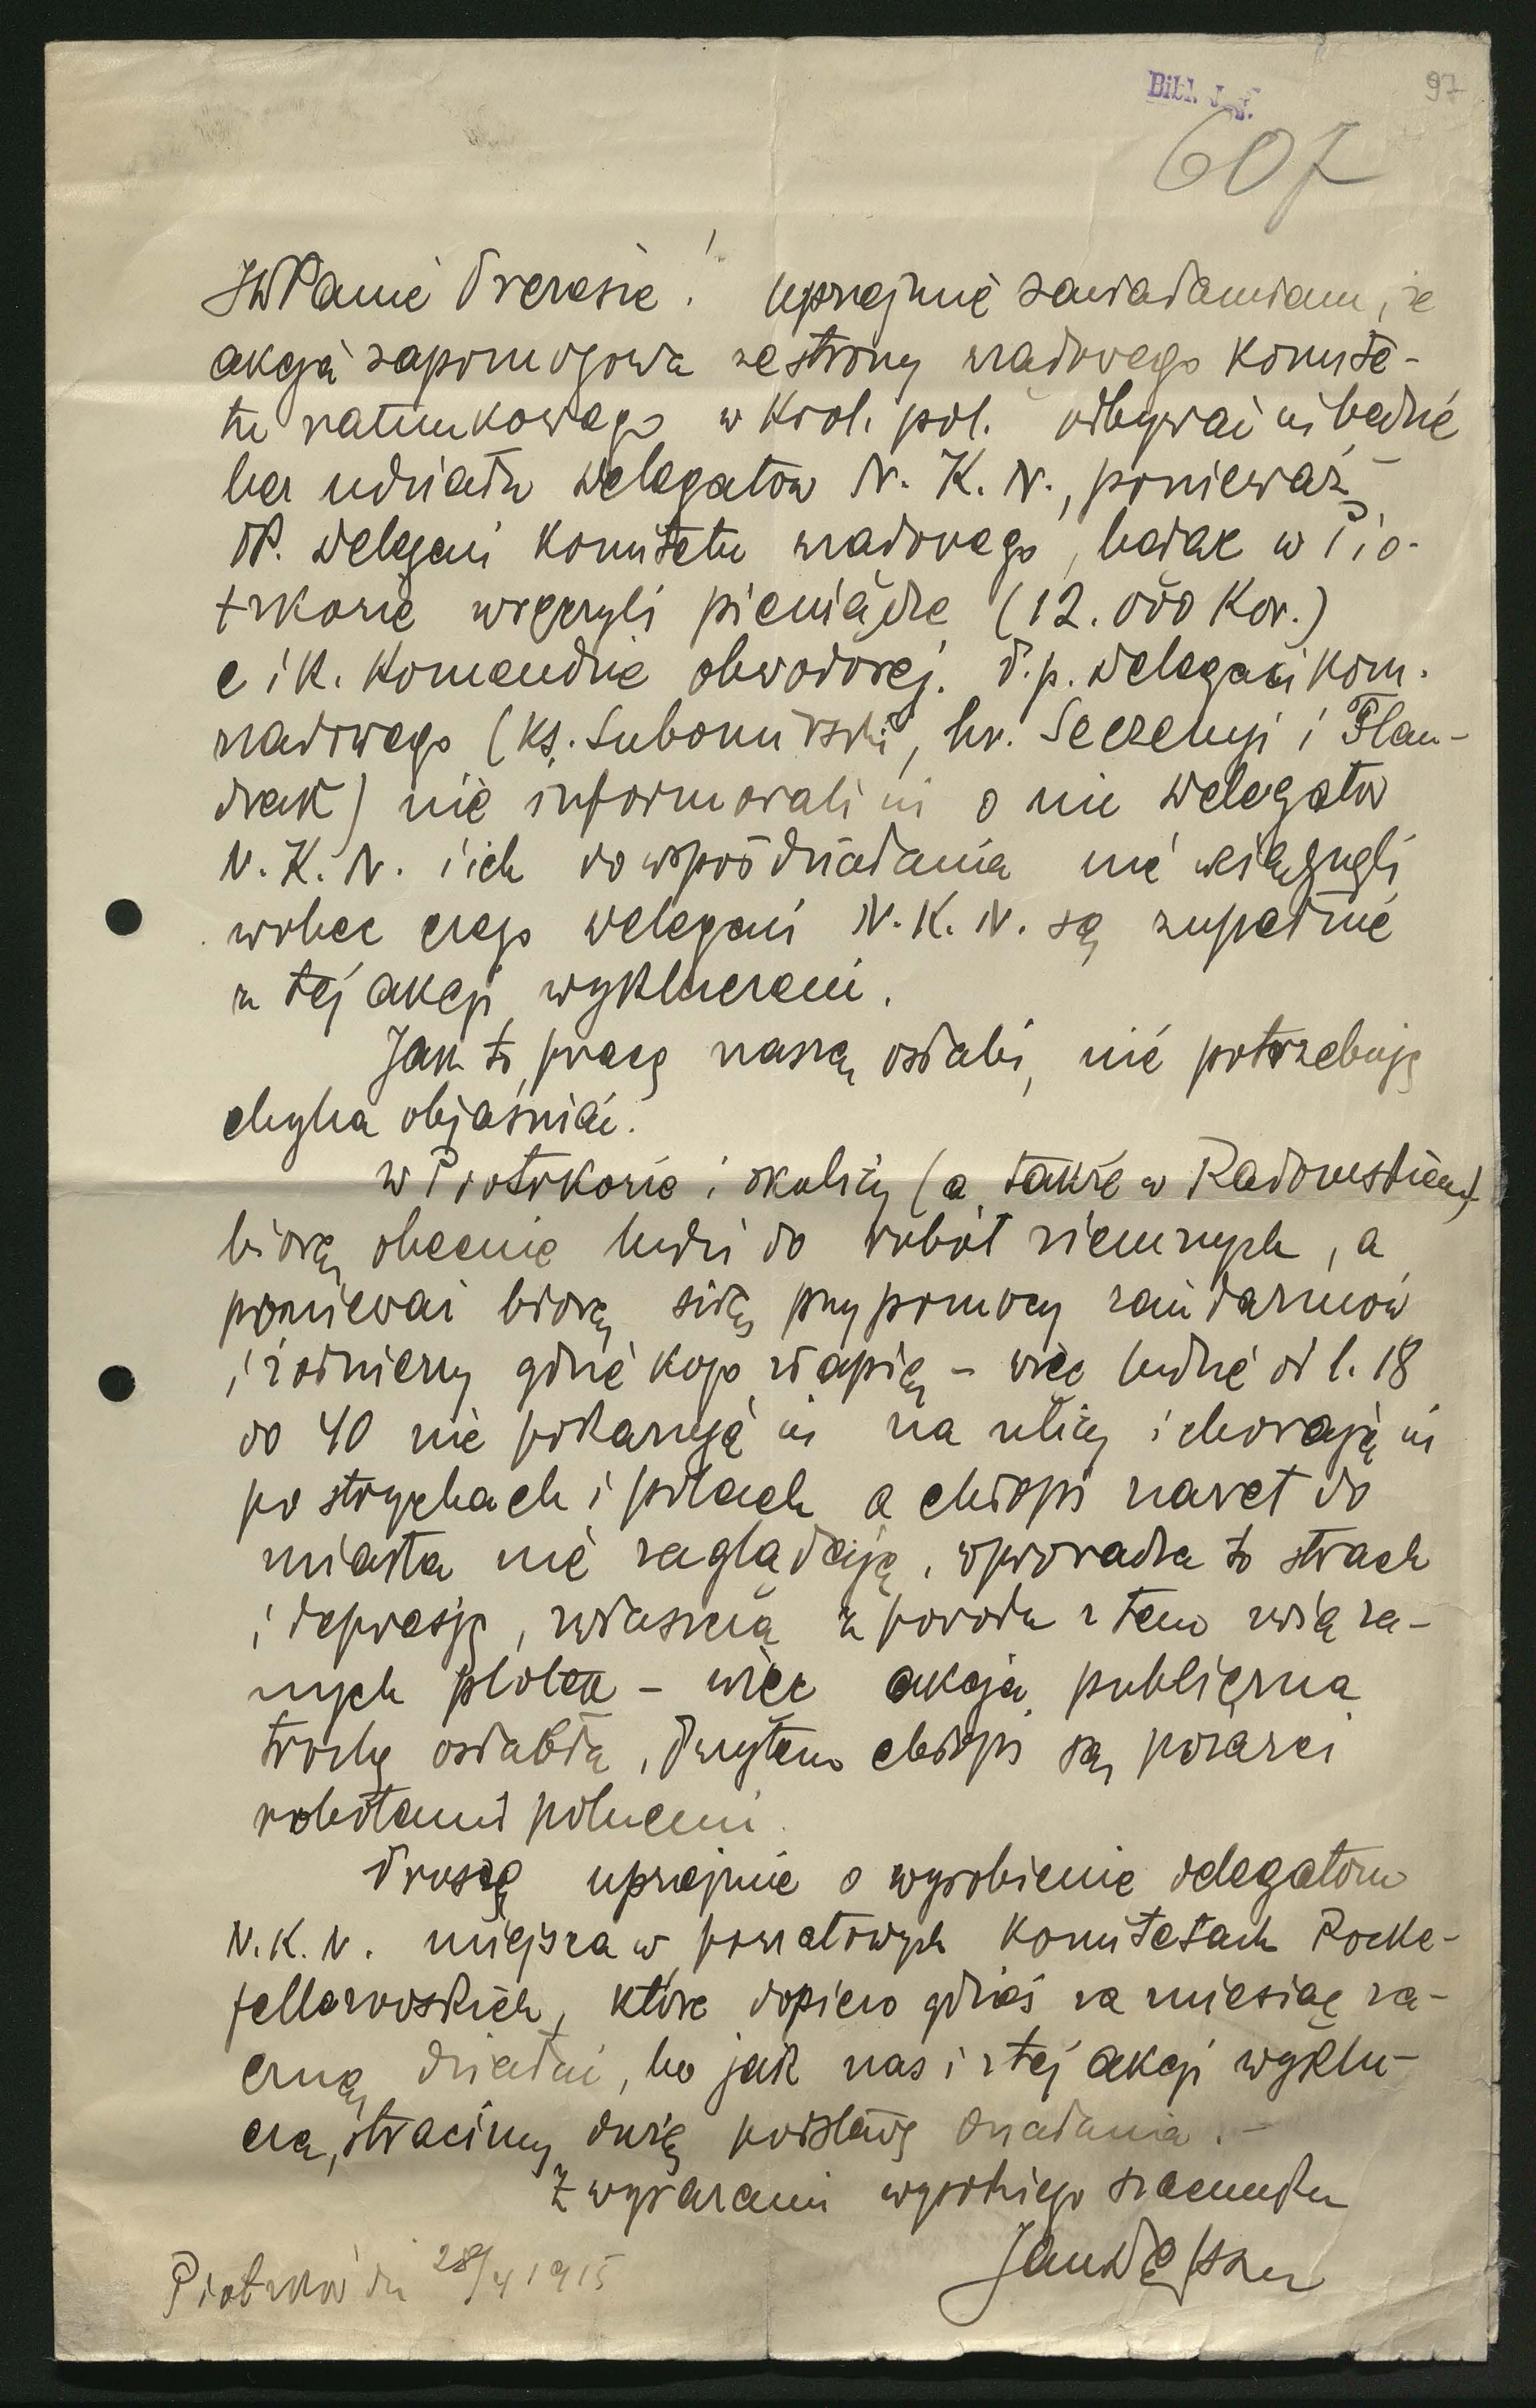 97
Bibl. Jag.
607
JWPanie Prezesie! Uprzejmie zawiadamiam, że
akcja zapomogowa ze strony rządowego komite-
tu ratunkowego w Król. pol. odbywać się będzie
bez udziału delegatów N. K. N., ponieważ
PP. delegaci komitetu rządowego, będąc w Pio-
trkowie wręczyli pieniądze (12.000 Kor.)
c i k. Komendzie obwodowej. P.p. delegaci kom.
rządowego (ks. Lubomirski, hr. Seczenyi i Flan-
drak) nie informowali się o nic delegatów
N. K. N. i ich do współdziałania nie wciągnęli
wobec czego delegaci N. K. N. są zupełnie
z tej akcji wykluczeni.
Jak to pracę naszą osłabi, nie potrzebuję
chyba objaśniać.
W Piotrkowie i okolicy (a także w Radomskiem)
biorą obecnie ludzi do robót ziemnych, a
ponieważ biorą siłą przy pomocy żandarmów
i żołnierzy gdzie kogo złapią – więc ludzie od l. 18
do 40 nie pokazują się na ulicy i chowają się
po strychach i polach a chłopi nawet do
miasta nie zaglądają. Wprowadza to strach
i depresję, zwłaszcza z powodu z tem związa-
nych plotek – więc akcja publiczna
trochę osłabła, przytem chłopi są pozajęci
robotami polnemi.
Proszę uprzejmie o wyrobienie delegatom
N. K. N. miejsca w powiatowych komitetach Rocke-
fellerowskich, które dopiero gdzieś za miesiąc za-
czną działać, bo jak nas i z tej akcji wyklu-
czą, stracimy dużą podstawę działania. –
Z wyrazami wysokiego szacunku
Jan Dąbski
Piotrków dn 28/4 1915